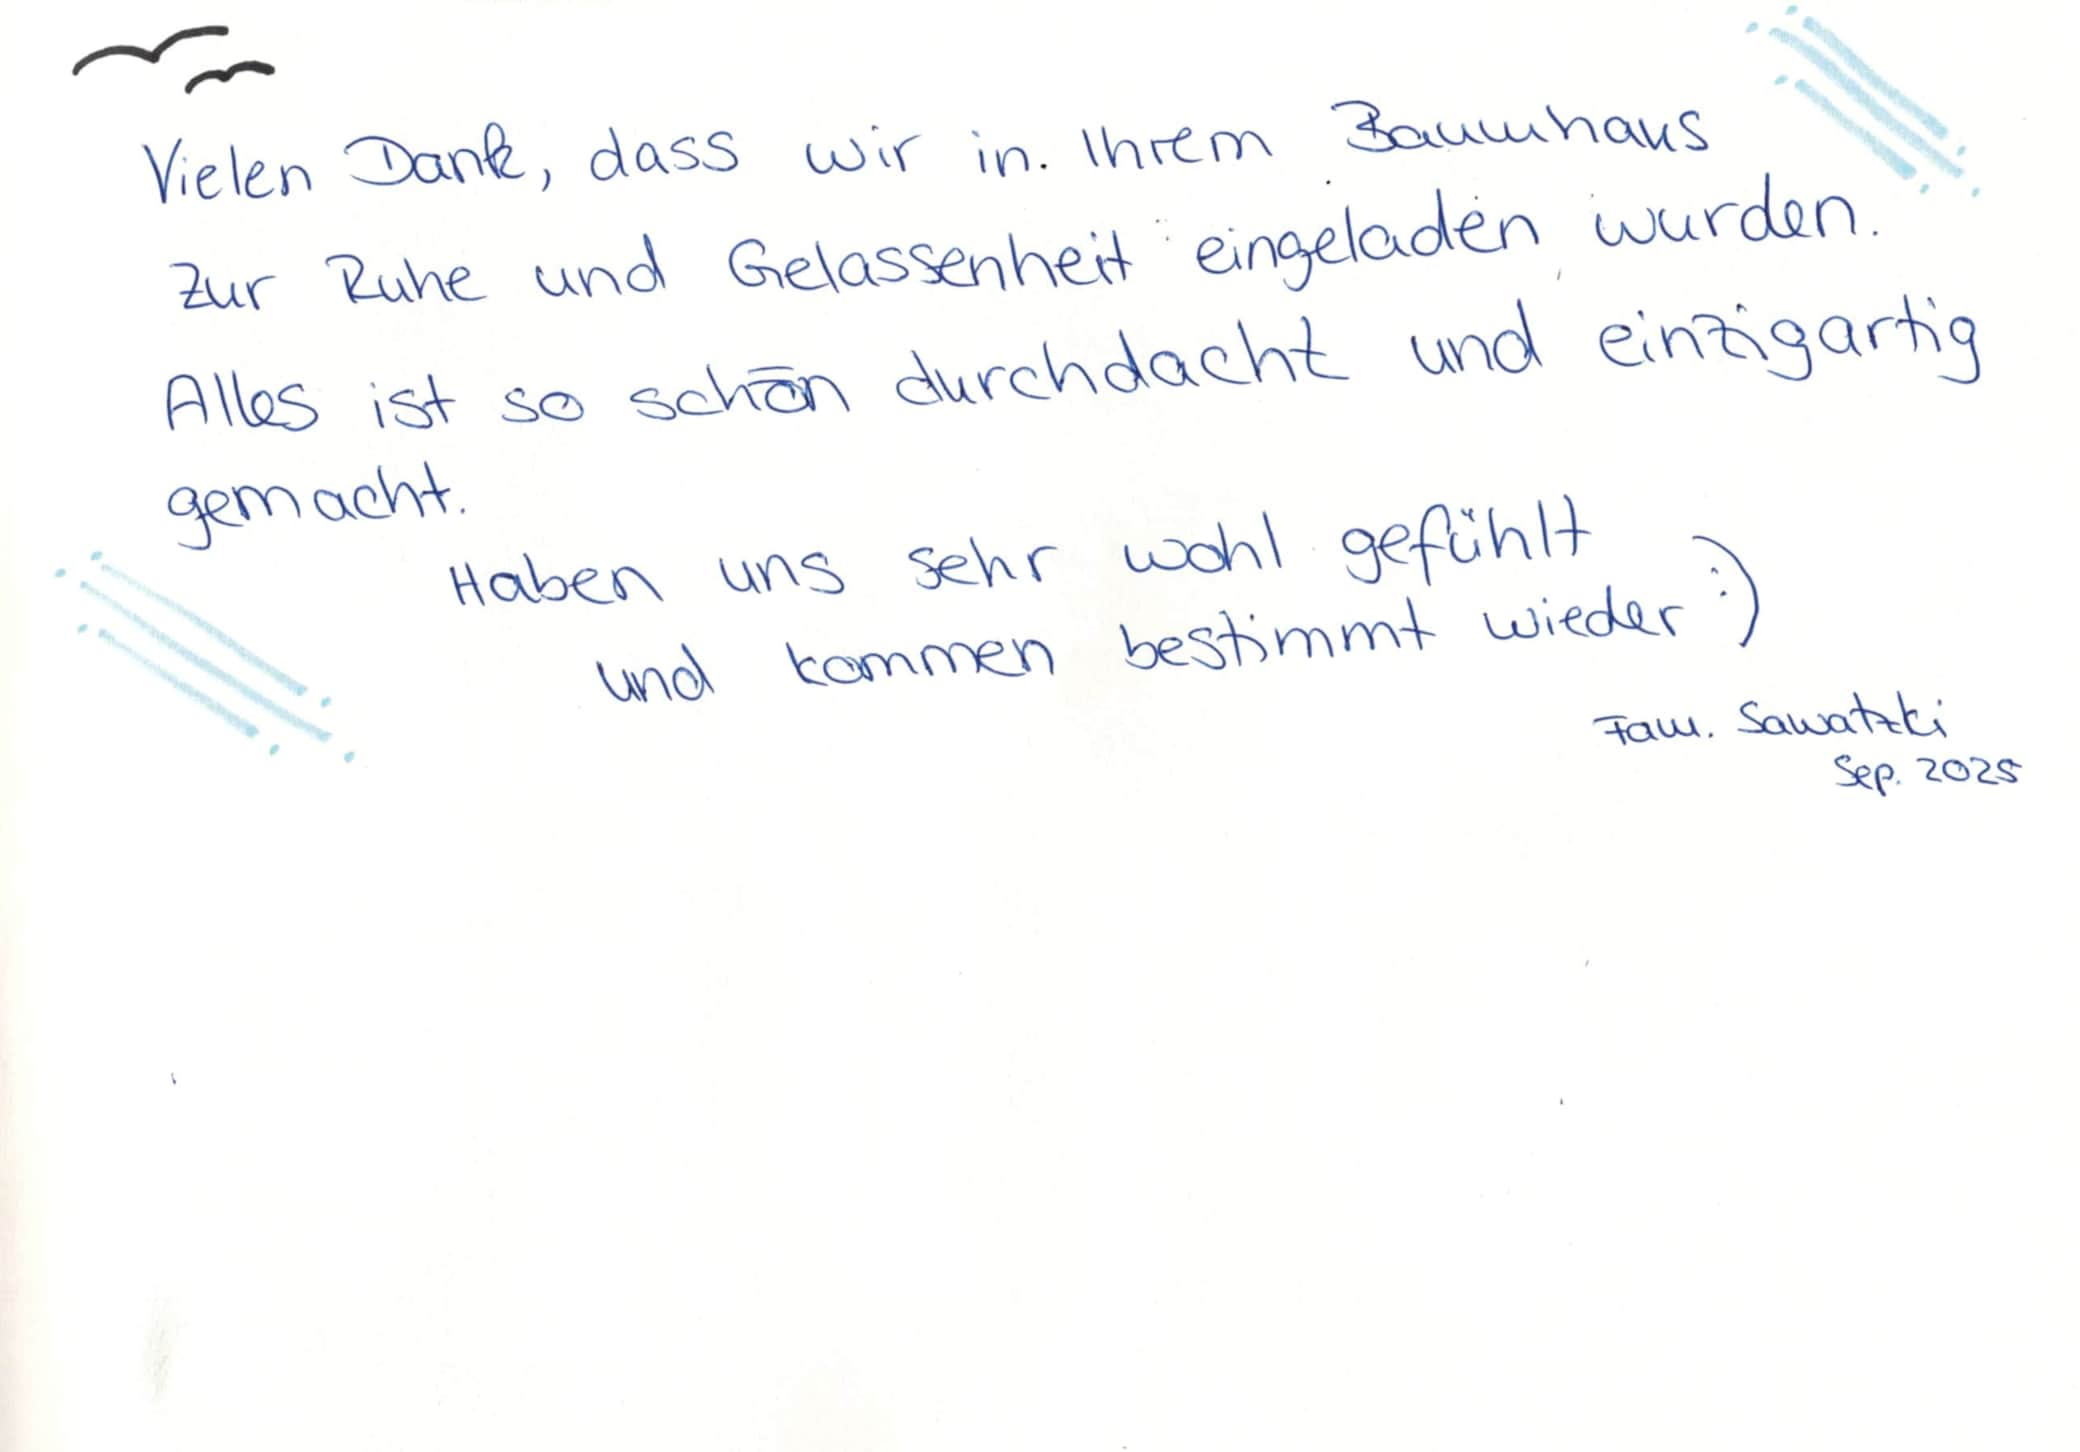 Vielen Dank, dass wir in Ihrem Baumhaus
zur Ruhe und Gelassenheit eingeladen wurden.
Alles ist so schön durchdacht und einzigartig
gemacht.
Haben uns sehr wohl gefühlt
und kommen bestimmt wieder :)
Fam. Sawatzki
Sep. 2025